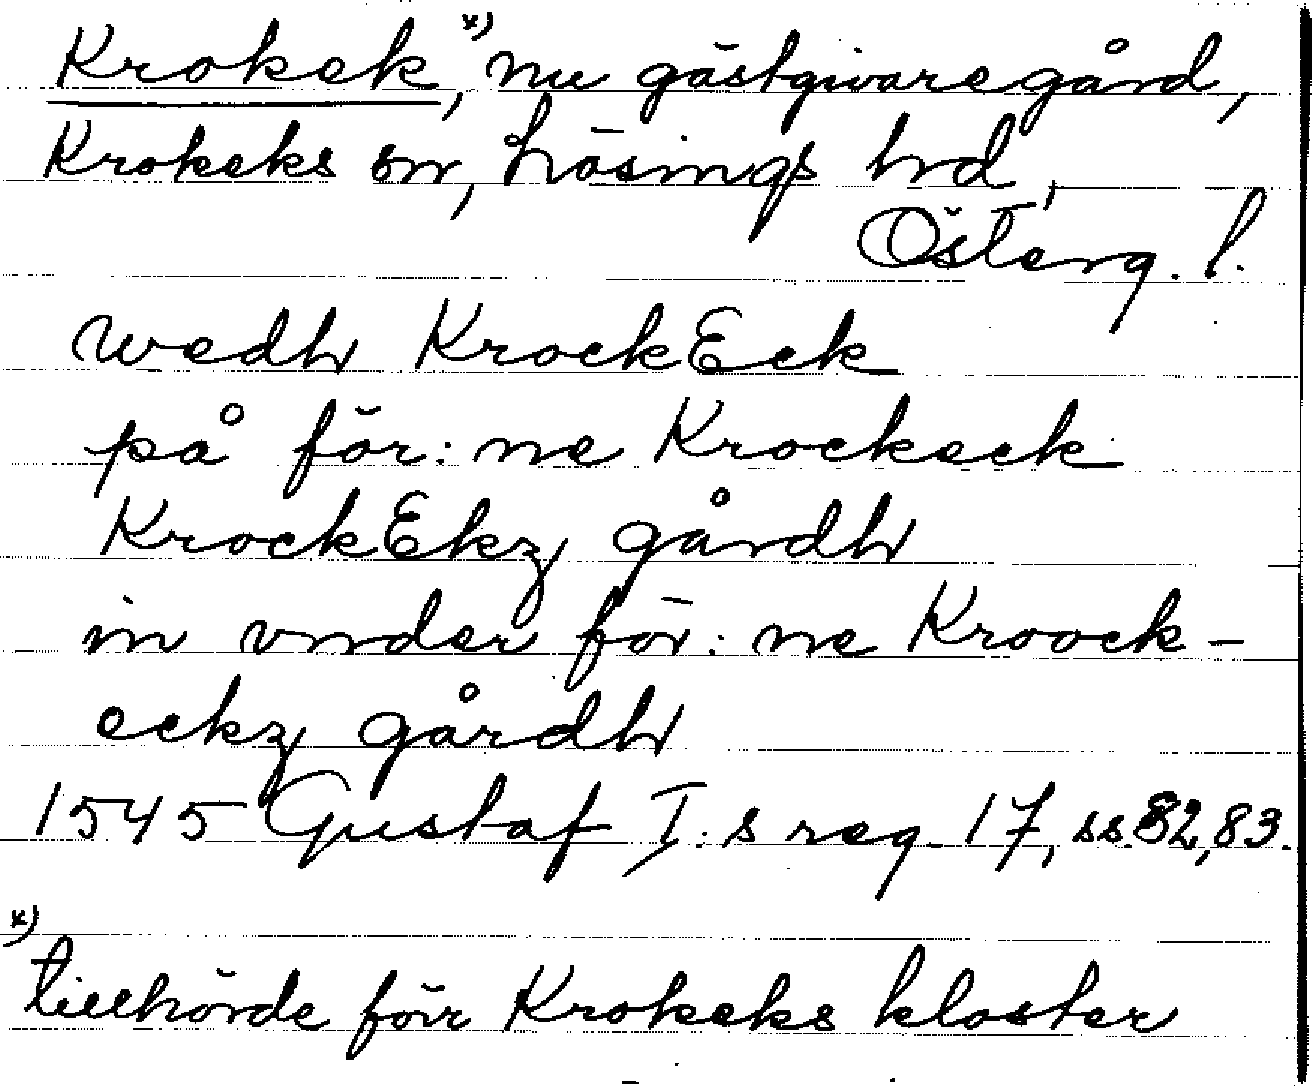 Krokek,*) nu gästgivaregård,
Krokeks sn, Lösings hd,
Österg. l.
wedh KrockEck
på för:ne Krockeck
KrockEkz gårdh
in vnder för:ne Kroock-
eckz gårdh
1545 Gustaf I:s reg. 17, ss. 82, 83.
*)
tillhörde förr Krokeks kloster